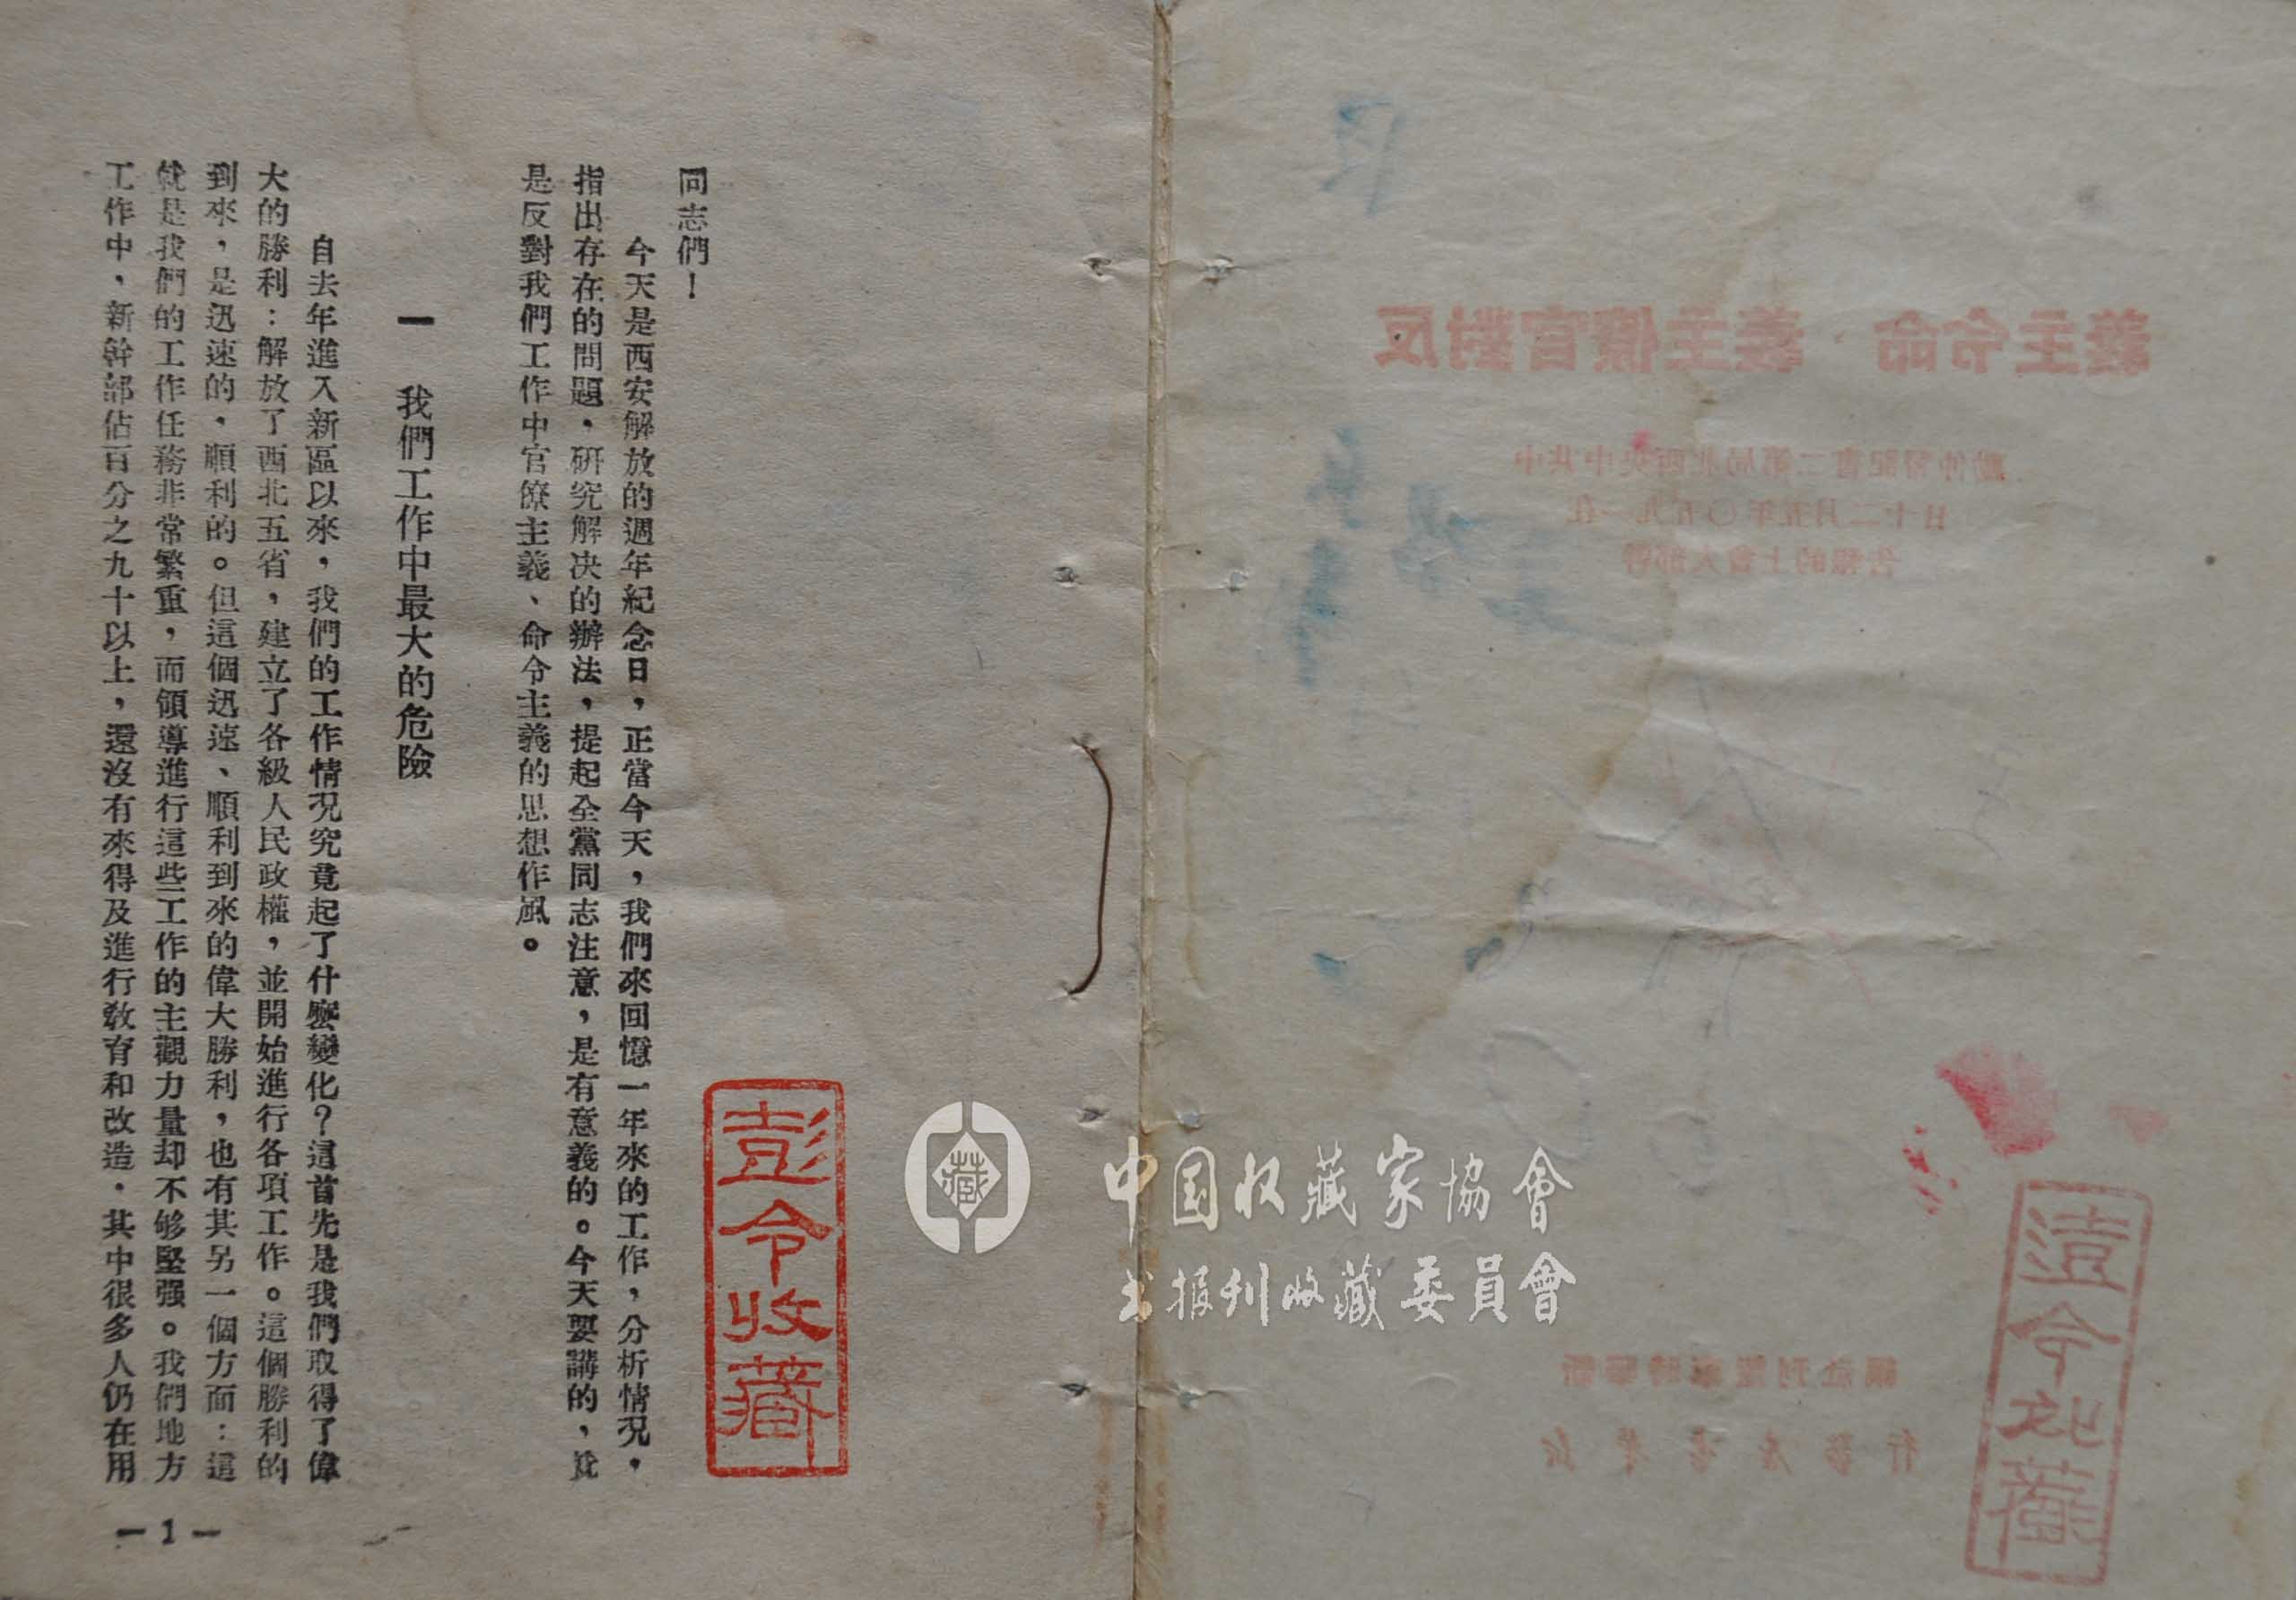 同志們！
今天是西安解放的週年紀念日，正當今天，我們來回憶一年來的工作，分析情況，
指出存在的問題，研究解决的辦法，提起全黨同志注意，是有意義的。今天要講的，就
是反對我們工作中官僚主義、命令主義的思想作風。
一　我們工作中最大的危險
自去年進入新區以來，我們的工作情况究竟起了什麽變化？這首先是我們取得了偉
大的勝利：解放了西北五省，建立了各級人民政權，並開始進行各項工作。這個勝利的
到來，是迅速的，順利的。但這個迅速、順利到來的偉大勝利，也有其另一個方面：這
就是我們的工作任務非常繁重，而領導進行這些工作的主觀力量却不够堅强。我們地方
工作中，新幹部佔百分之九十以上，還沒有來得及進行教育和改造，其中很多人仍在用
—1—
彭令收藏
反對官僚主義 命令主義
中共中央西北局第二書記習仲勳
在一九五〇年五月二十日
幹部大會上的報告
彭令收藏
中国收藏家協會
书报刊收藏委員會